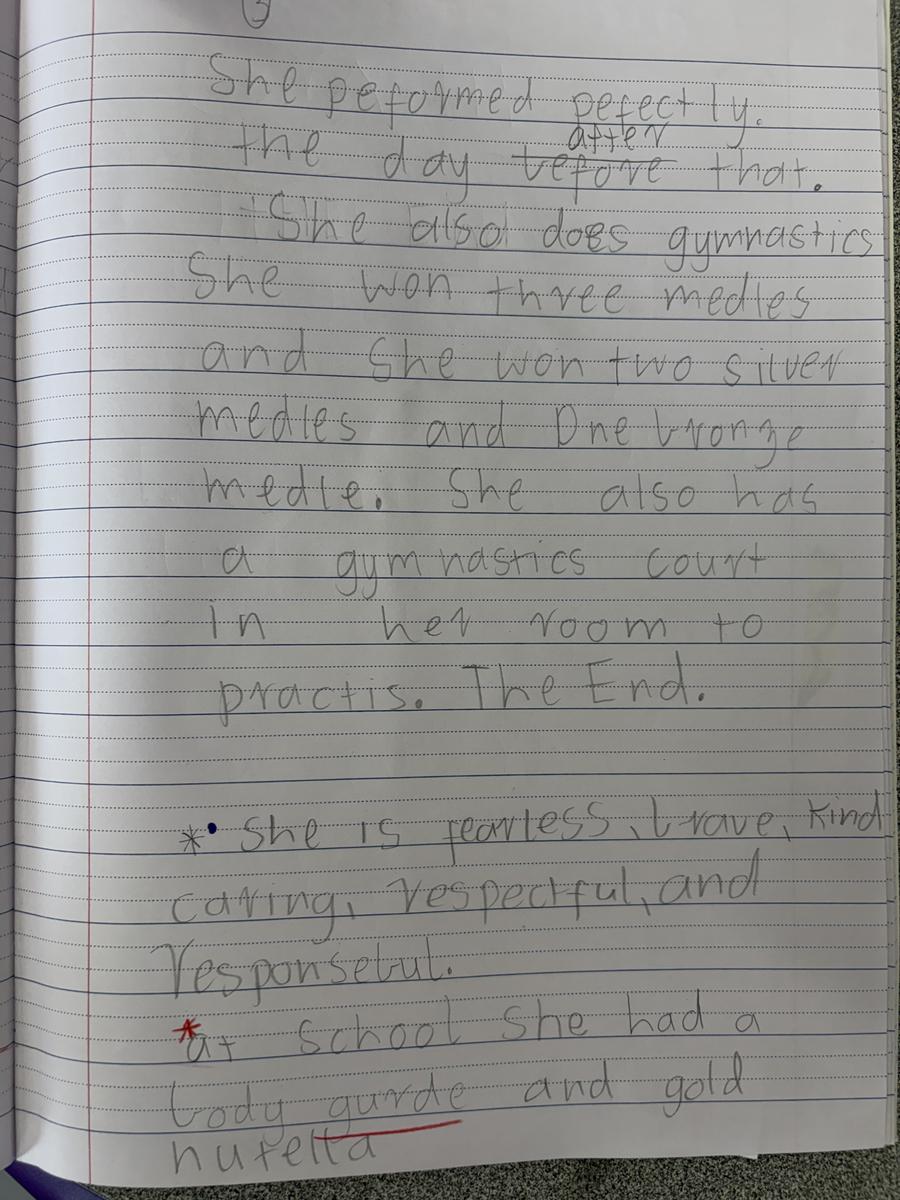 3
She peformed pefectly.
after
the day before that.
She also does gymnastics
She won three medles
and She won two silver
medles and One bronze
medle. She also has
a gymnastics court
in her room to
practis. The End.
* She is fearless, brave, kind
caring, respectful, and
responsebul.
* at school she had a
body gurde and gold
nutella